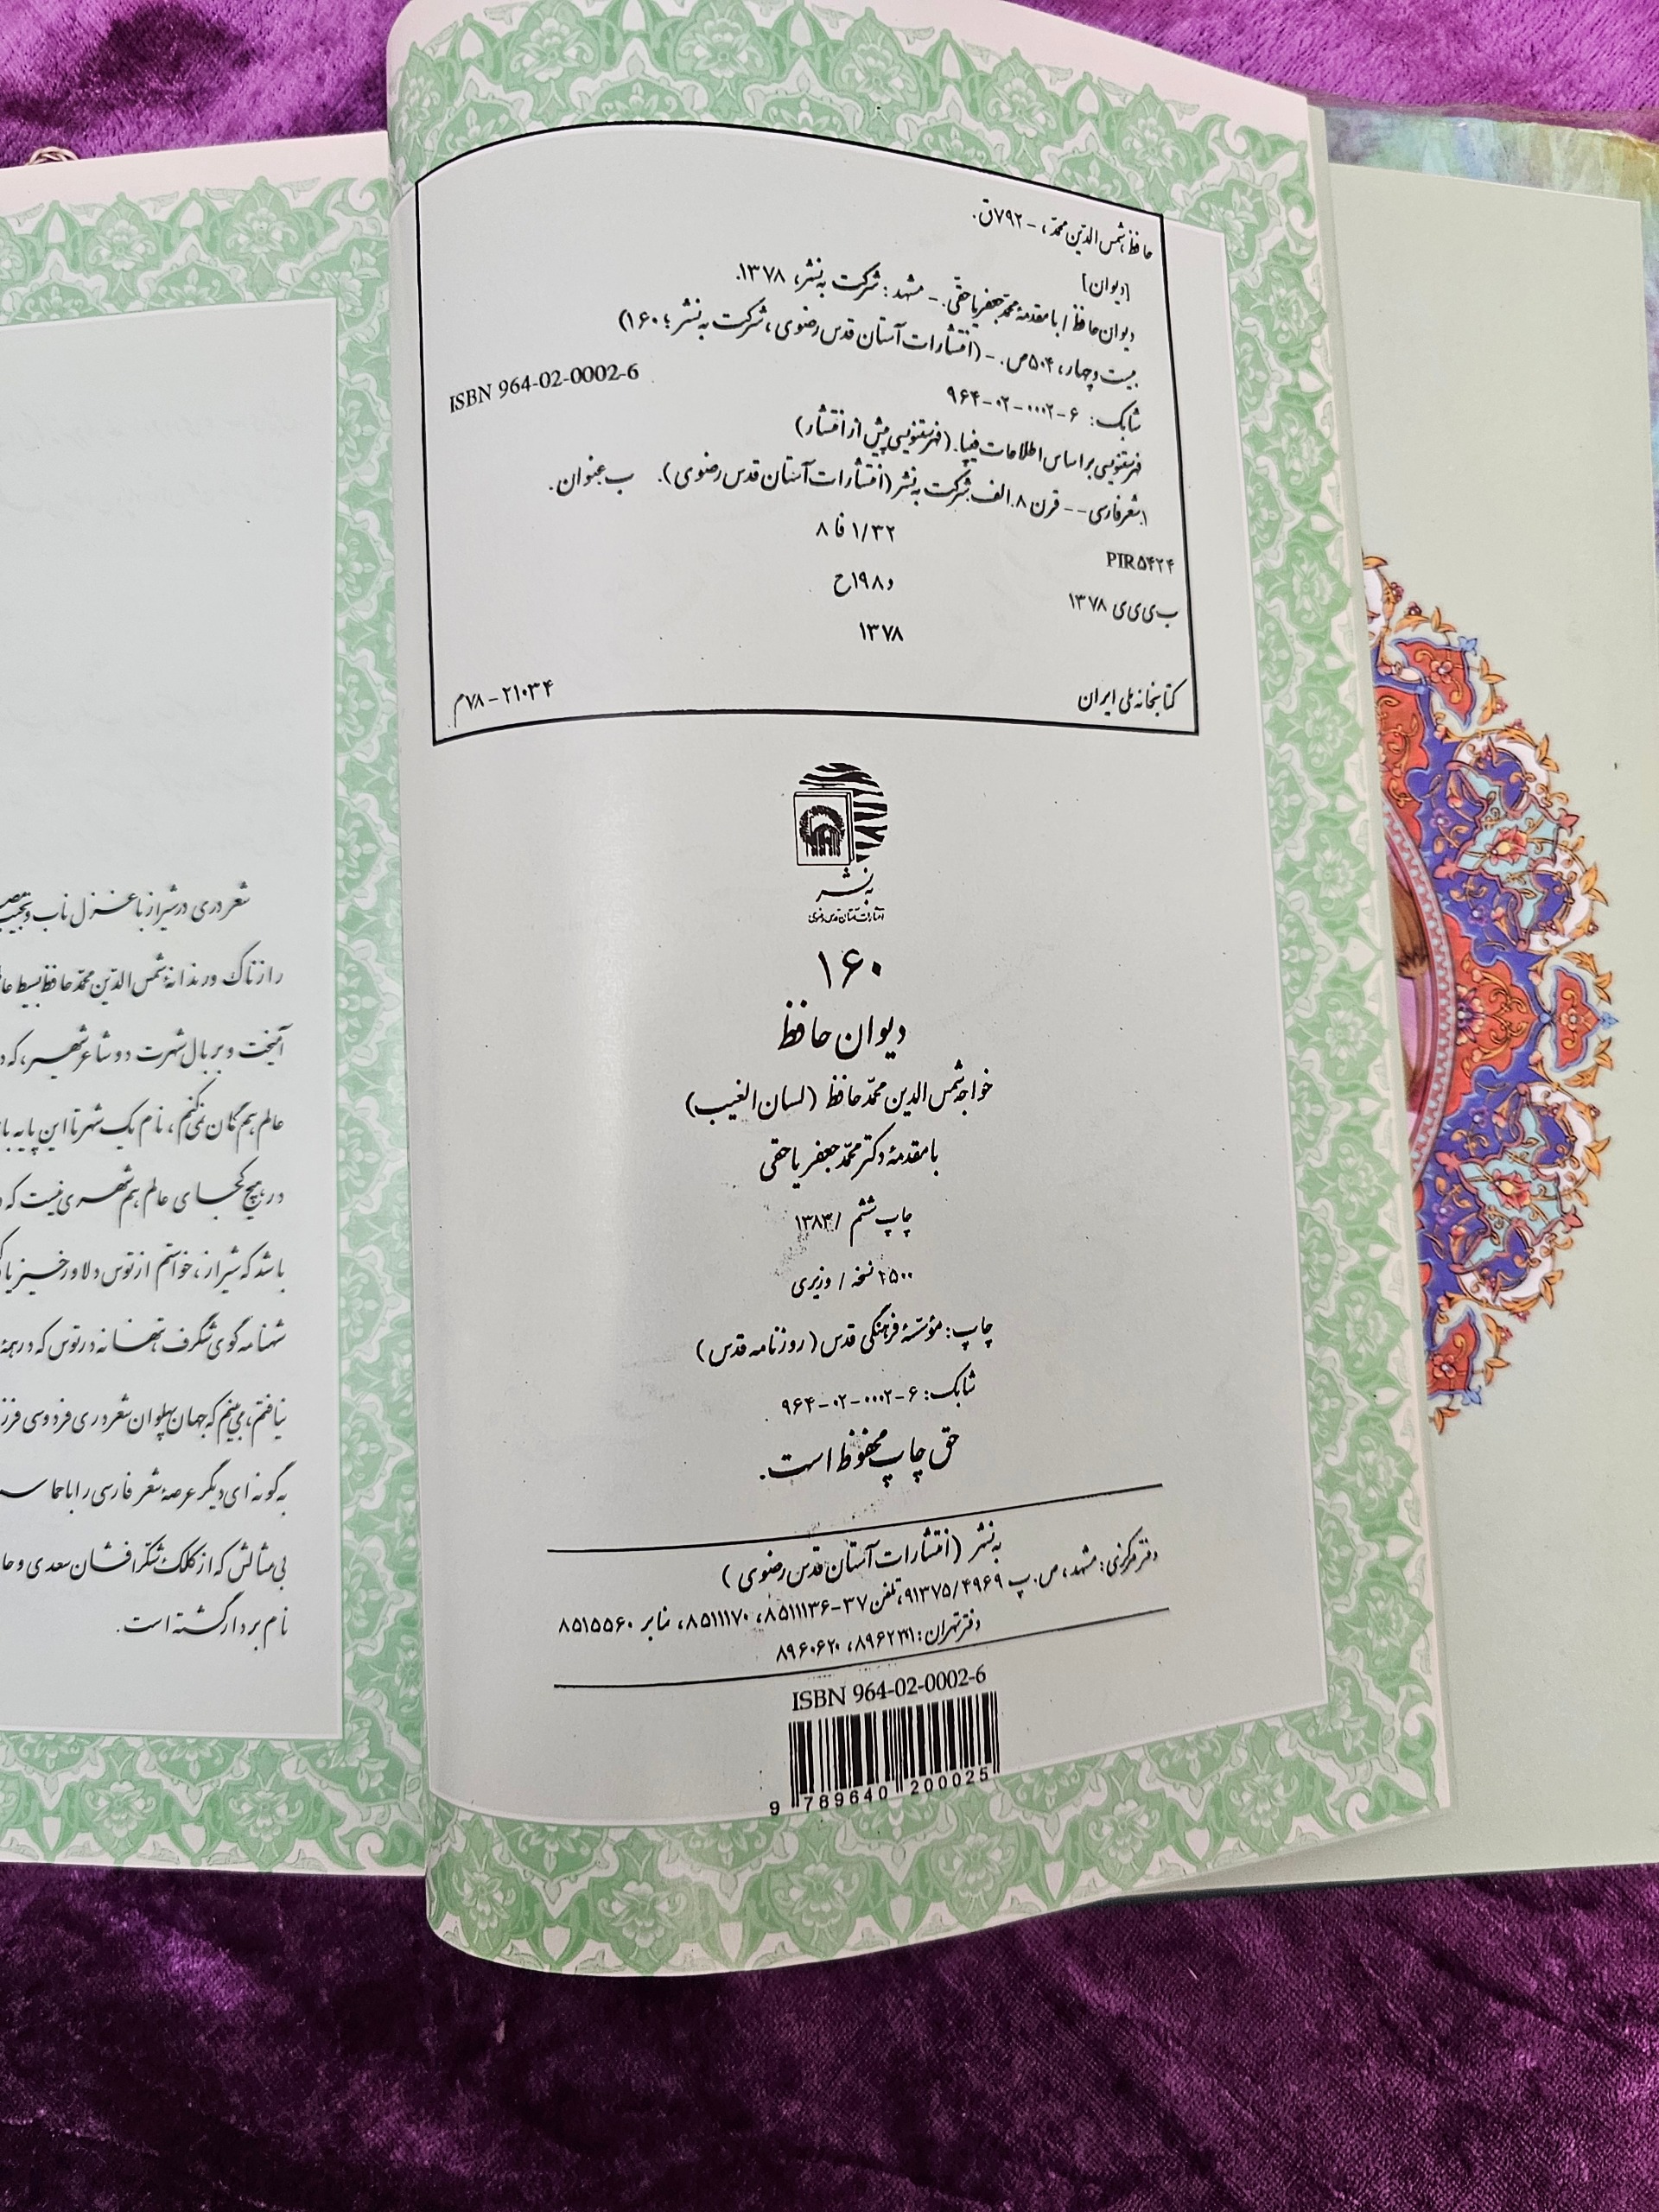 حافظ، شمس الدین محمّد، - ۷۹۲ق.
[دیوان]
دیوان حافظ / با مقدمهٔ محمّدجعفر یاحقّی. – مشهد: شرکت به‌نشر، ۱۳۷۸.
بیست و چهار، ۵۰۴ص. – (انتشارات آستان قدس رضوی، شرکت به‌نشر؛ ۱۶۰)
ISBN 964-02-0002-6
شابک: ۶-۰۰۰۲-۰۲-۹۶۴
فهرستنویسی بر اساس اطلاعات فیپا. (فهرستنویسی پیش از انتشار)
۱.شعر فارسی -- قرن ۸. الف. شرکت به‌نشر (انتشارات آستان قدس رضوی). ب عنوان.
۸ فا ۱/۳۲
PIR۵۴۲۴
د۱۹۸ح
ب ی ی ی ۱۳۷۸
۱۳۷۸
کتابخانه ملی ایران
۲۱۰۳۴-۷۸م
به نشر
انتشارات آستان قدس رضوی
۱۶۰
دیوان حافظ
خواجه شمس الدین محمّد حافظ (لسان الغیب)
با مقدمهٔ دکتر محمّد جعفر یاحقی
چاپ ششم / ۱۳۸۳
۲۵۰۰ نسخه / وزیری
چاپ: مؤسّسهٔ فرهنگی قدس (روزنامه قدس)
شابک: ۶-۰۰۰۲-۰۲-۹۶۴
حق چاپ محفوظ است.
به‌نشر (انتشارات آستان قدس رضوی)
دفتر مرکزی: مشهد، ص.پ ۹۱۳۷۵/۴۹۶۹، تلفن ۳۷-۸۵۱۱۱۳۶، ۸۵۱۱۱۷۰، نمابر ۸۵۱۵۵۶۰
دفتر تهران: ۸۹۶۰۶۲۰
ISBN 964-02-0002-6
9 789640 200025
شعر دری در شیراز با غزل ناب و
رازناک و رندانهٔ شمس الدّین محمّد حافظ بسیط
آمیخت و بر بال شهرت دو شاعر شهیر، که
عالم هم گمان نمی‌کنم، نام یک شهر تا این پایه
در هیچ کجای عالم هم شهری نیست که
باشد که شیراز، خواستم از توس دلاورخیز یاد
شهنامه گوی شگرف تنها نه در توس که در همهٔ
نیافتم، می‌بینم که جهان پهلوان شعر دری فردوسی
به گونه‌ای دیگر عرصهٔ شعر فارسی را با
بی مثالش که از کلک شکّرافشان سعدی و
نام بردار گشته است.